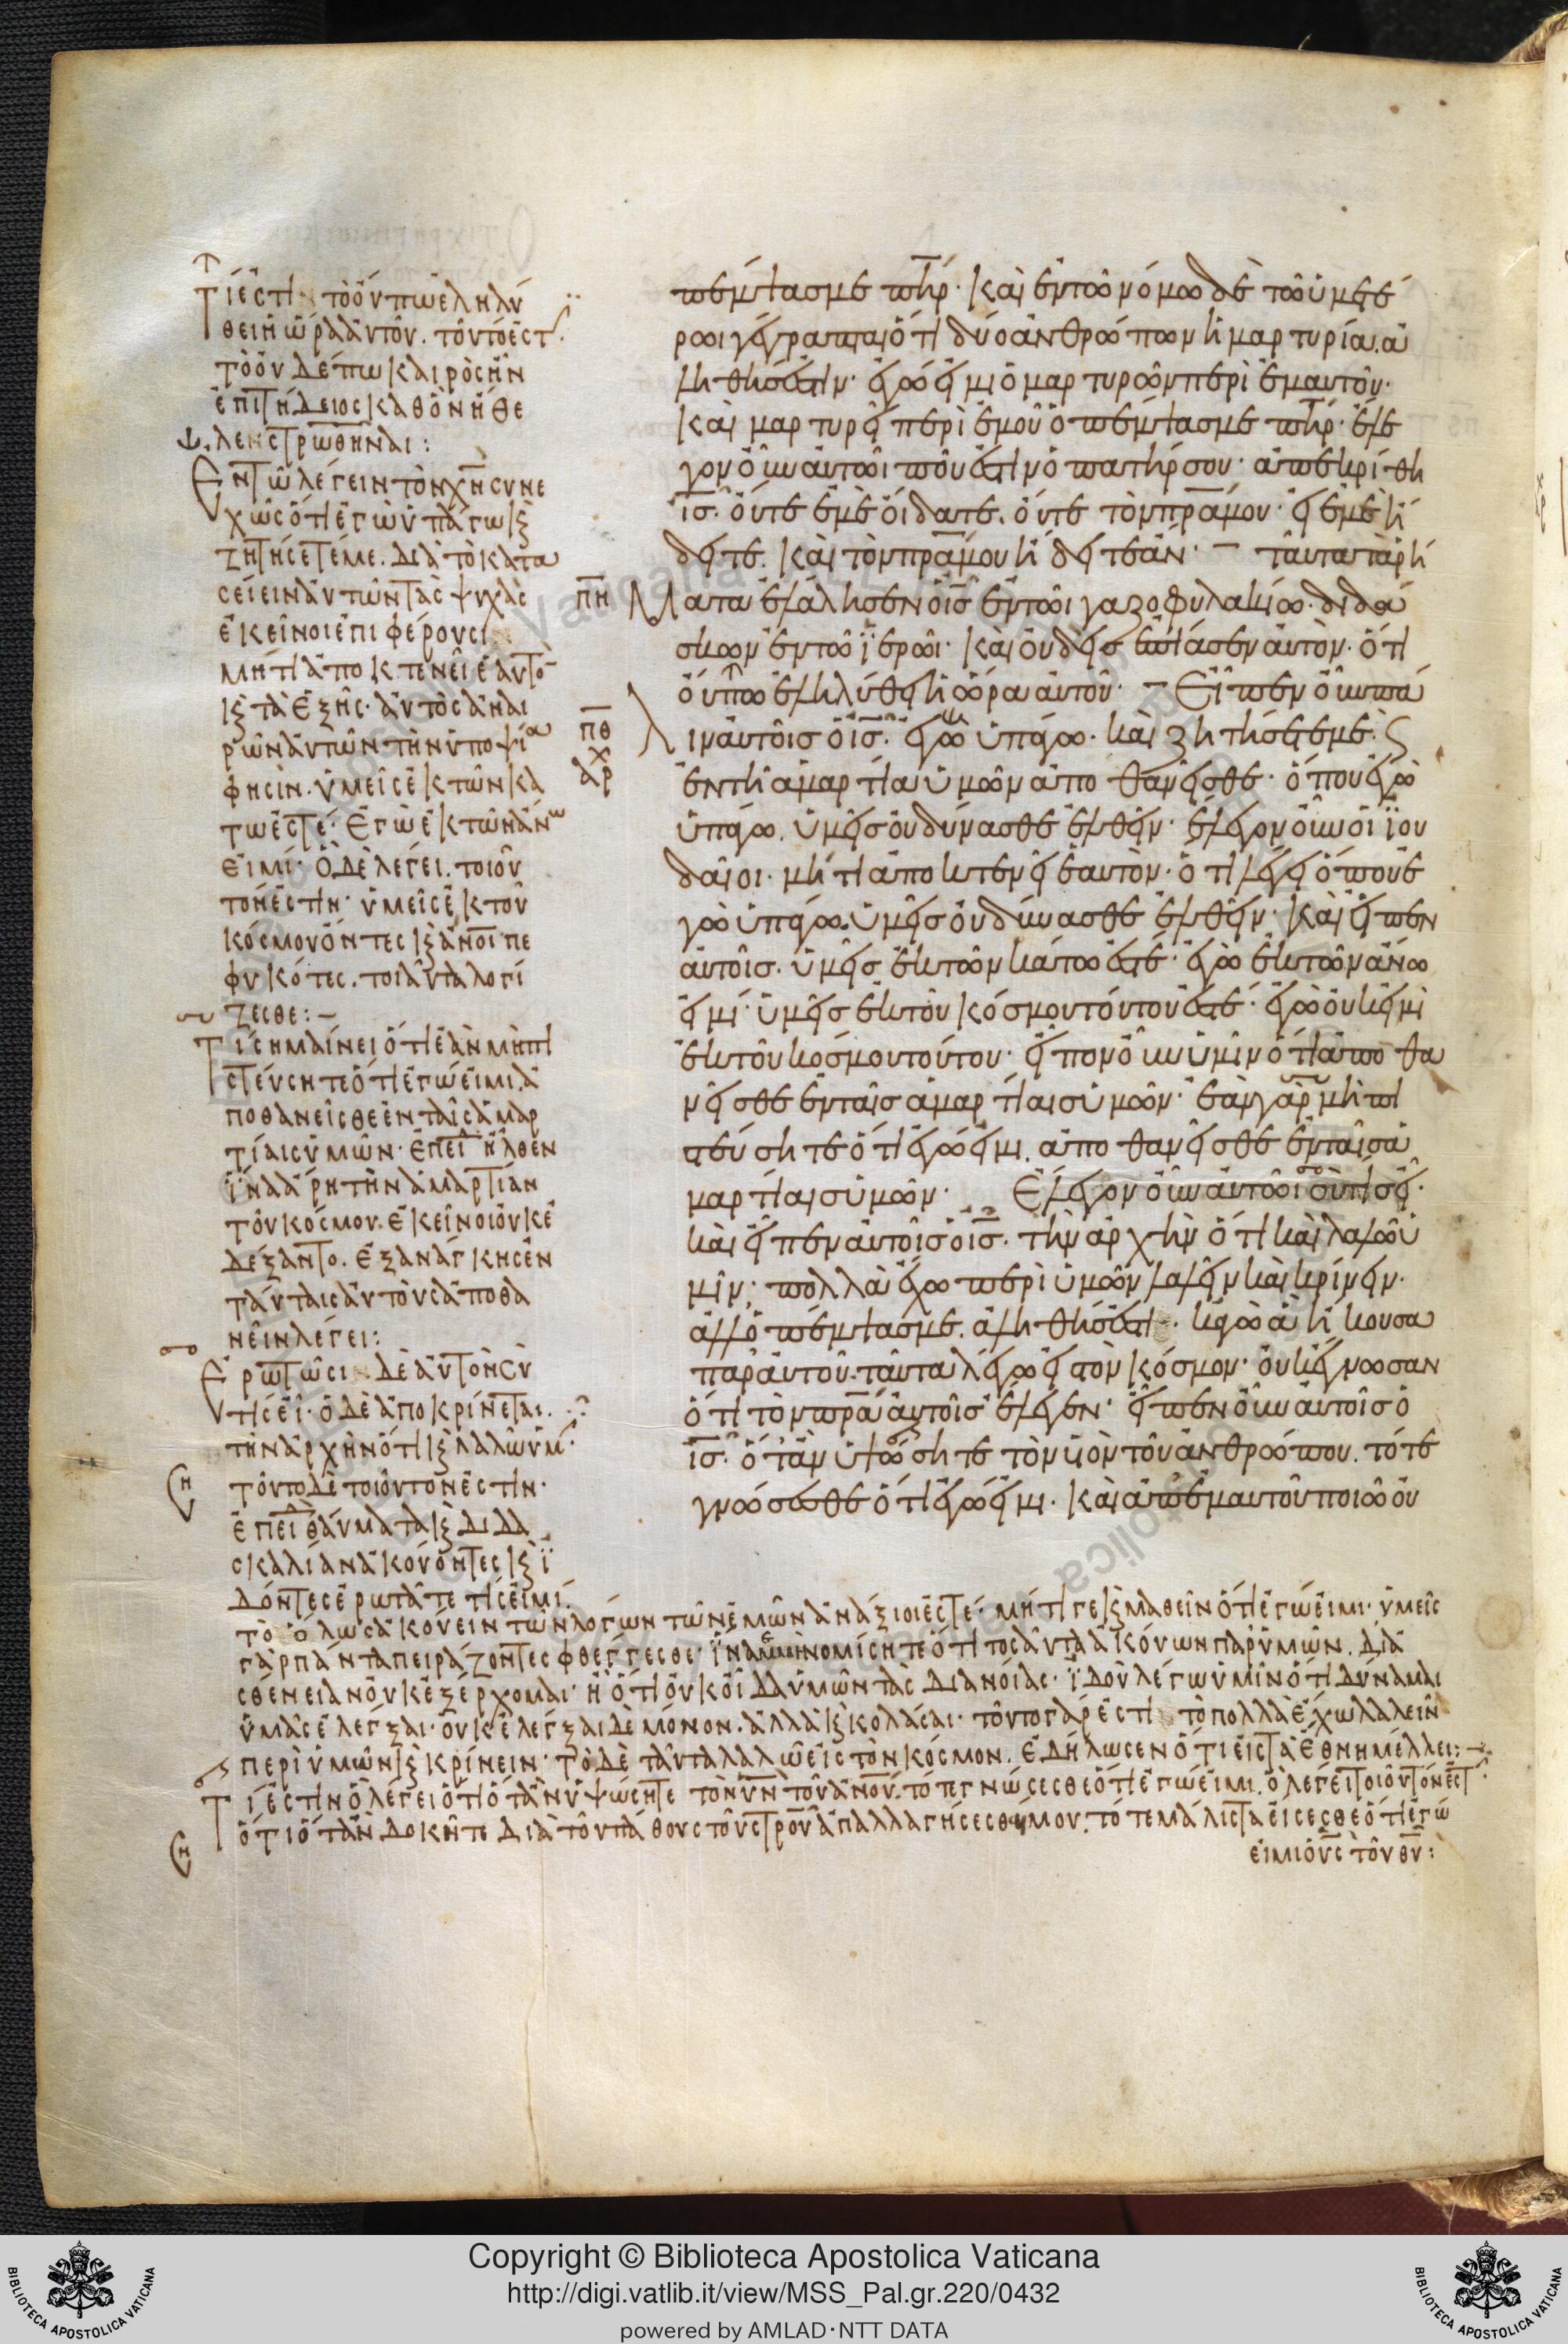 Τί ἐστι τὸ οὔπω ἐληλύ
θει ἡ ὥρα αὐτοῦ. τοῦτό ἐστ
τὸ οὐδέπω καιρὸς ἦν
ἐπιτήδειος καθ ὃν ἤθε
λεν στρωθῆναι:
Ἐν τῶ λέγειν τὸν χν συνε
χῶς ὅτι ἐγὼ ὑπάγω κ
ζητήσετέ με. διὰ τὸ κατα
σείειν αὐτῶν τὰς ψυχὰς
ἐκεῖνοι ἐπιφέρουσι
μήτι ἀποκτενεῖ ἑαυτὸ
κ τὰ ἑξῆς. αὐτὸς ἀναι
ρῶν αὐτῶν τὴν ὑποψία
φησὶν. ὑμεῖς ἐκ τῶν κά
τω ἐστέ. Ἐγὼ ἐκ τῶν ἄνω
εἰμί. ὃ δὲ λέγει. τοιοῦ
τόν ἐστιν. ὑμεῖς ἐκ τοῦ
κόσμου ὄντες κ ανοι πε
φυκότες. τοιαῦτα λογί
ζεσθε:
Τί σημαίνει ὅτι ἐὰν μὴ πι
στεύσητε ὅτι ἐγώ εἰμι, ἀ
ποθανεῖσθε ἐν ταῖς ἁμαρ
τίαις ὑμῶν. ἐπεὶ ἦλθεν
ἵνα ἄρη τὴν ἁμαρτίαν
τοῦ κόσμου. ἐκεῖνοι οὐκ ἐ
δέξαντο. ἐξανάγκης ἐν
ταύταις αὐτοὺς ἀποθα
νεῖν λέγει:
Ἐρωτῶσι δὲ αὐτὸν σὺ
τίς εἶ. ὁ δὲ ἀποκρίνεται.
τὴν ἀρχὴν ὅτι κ λαλῶ ὑμ
τοῦτο δὲ τοιοῦτον ἐστιν.
ἐπειδὴ θαύματα κ διδα
σκαλίαν ἀκούοντες κ ἰ
δόντες ἐρωτᾶτε τίς εἰμί.
τὸ ὅλως ἀκούειν τῶν λόγων τῶν ἐμῶν ἀνάξιοι ἐστέ. μήτι γε κ μαθεῖν ὅτι ἐγώ εἰμι. ὑμεῖς
γὰρ πάντα πειράζοντες φθέγγεσθε. ἵνα μὴ νομίσητε ὅτι τοσαῦτα ἀκούων παρ ὑμῶν. δι ἀ
σθένειαν οὐκ ἐξέρχομαι. ἢ ὅτι οὐκ οἶδα ὑμῶν τὰς διανοίας. ἰδοὺ λέγω ὑμῖν ὅτι δύναμαι
ὑμᾶς ἐλέγξαι. οὐκ ἐλέγξαι δὲ μόνον. ἀλλὰ κ κολάσαι. τοῦτο γάρ ἐστι τὸ πολλὰ ἔχω λαλεῖν
περὶ ὑμῶν κ κρίνειν. τὸ δὲ ταῦτα λαλῶ εἰς τὸν κόσμον. ἐδήλωσεν ὅτι εἰς τὰ ἔθνη μέλλει:
Τί ἐστιν ὃ λέγει ὅτι ὅταν ὑψώσητε τὸν υν τοῦ ανου. τότε γνώσεσθε ὅτι ἐγώ εἰμι. ὃ λέγει τοιοῦτόν ἐστ
ὅτι ὅταν δοκῆτε διὰ τοῦ πάθους τοῦ στρου ἀπαλλαγήσεσθέ μου. τότε μάλιστα εἴσεσθε ὅτι ἐγώ
εἰμι ὁ υς τοῦ θυ:
πέμψας με πηρ. καὶ ἐν τῶ νόμω δὲ τῶ ὑμετέ
ρωι γέγραπται ὅτι δύο ἀνθρώπων ἡ μαρτυρία ἀ
ληθής ἐστιν. ἐγώ εἰμι ὁ μαρτυρῶν περὶ ἐμαυτοῦ.
καὶ μαρτυρεῖ περὶ ἐμοῦ ὁ πέμψας με πηρ. ἔλε
γον οὖν αὐτῶι ποῦ ἐστιν ὁ πατήρ σου. ἀπεκρίθη
ις. οὔτε ἐμὲ οἴδατε. οὔτε τὸν πρα μου. εἰ ἐμὲ ἤ
δειτε. καὶ τὸν πρα μου ἤδειτε ἄν. ταῦτα τὰ ρή
πη ματα ἐλάλησεν ὁ ις ἐν τῶι γαζοφυλακίω. διδά
σκων ἐν τῶ ἱερῶι. καὶ οὐδεὶς ἐπίασεν αὐτόν. ὅτι
οὔπω ἐληλύθει ἡ ὥρα αὐτοῦ. Εἶπεν οὖν πά
πθ λιν αὐτοῖς ὁ ις. ἐγὼ ὑπάγω. καὶ ζητήσετέ με. κ
αρχ ἐν τῆ ἁμαρτία ὑμῶν ἀποθανεῖσθε. ὅπου ἐγὼ
ὑπάγω. ὑμεῖς οὐ δύνασθε ἐλθεῖν. ἔλεγον οὖν οἱ ἰου
δαῖοι. μήτι ἀποκτενεῖ ἑαυτὸν. ὅτι λέγει ὅπου ἐ
γὼ ὑπάγω. ὑμεῖς οὐ δύνασθε ἐλθεῖν. καὶ εἶπεν
αὐτοῖς. ὑμεῖς ἐκ τῶν κάτω ἐστέ. ἐγὼ ἐκ τῶν ἄνω
εἰμί. ὑμεῖς ἐκ τοῦ κόσμου τούτου ἐστέ. ἐγὼ οὐκ εἰμὶ
ἐκ τοῦ κόσμου τούτου. εἶπον οὖν ὑμῖν ὅτι ἀποθα
νεῖσθε ἐν ταῖς ἁμαρτίαις ὑμῶν. ἐὰν γὰρ μὴ πι
στεύσητε ὅτι ἐγώ εἰμι. ἀποθανεῖσθε ἐν ταῖς ἁ
μαρτίαις ὑμῶν. Ἔλεγον οὖν αὐτῶι σὺ τίς εἶ.
καὶ εἶπεν αὐτοῖς ὁ ις. τὴν ἀρχὴν ὅτι καὶ λαλῶ ὑ
μῖν. πολλὰ ἔχω περὶ ὑμῶν λαλεῖν καὶ κρίνειν.
ἀλλ ὁ πέμψας με. ἀληθής ἐστι. κἀγὼ ἃ ἤκουσα
παρ αὐτοῦ. ταῦτα λέγω εἰς τὸν κόσμον. οὐκ ἔγνωσαν
ὅτι τὸν πρα αὐτοῖς ἔλεγεν. εἶπεν οὖν αὐτοῖς ὁ
ις. ὅταν ὑψώσητε τὸν υἱὸν τοῦ ἀνθρώπου. τότε
γνώσεσθε ὅτι ἐγώ εἰμι. καὶ ἀπ ἐμαυτοῦ ποιῶ οὐ
Copyright © Biblioteca Apostolica Vaticana
http://digi.vatlib.it/view/MSS_Pal.gr.220/0432
powered by AMLAD·NTT DATA
BIBLIOTECA APOSTOLICA VATICANA
BIBLIOTECA APOSTOLICA VATICANA